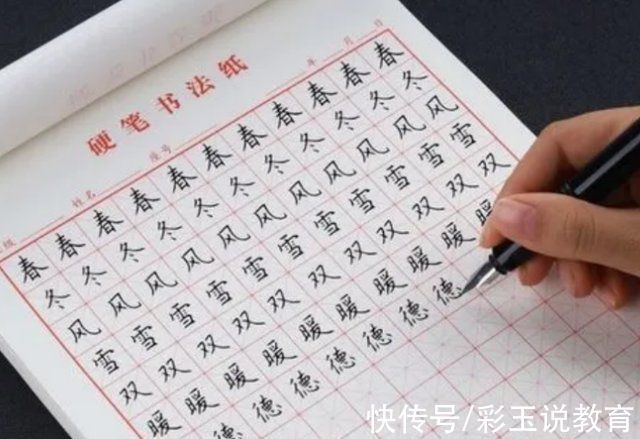 硬笔书法纸
级 姓名 座号 年 月 日
春春春春春春春春春春春
冬冬冬冬冬冬冬冬冬冬冬
风风风风风风风风风风风
雪雪雪雪雪雪雪雪雪雪雪
双双双双双双双双双双双
暖暖暖暖暖暖暖暖暖暖
德德德德德德德
快传号/彩玉说教育